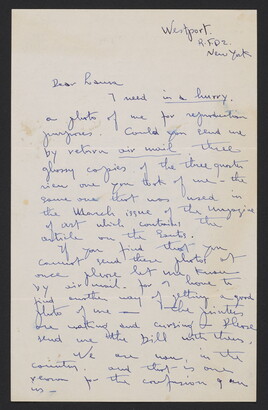 Westport.
R.F.D 2.
New York
Dear Laura
I need in a hurry.
a photo of me for reproduction
purposes. Could you send me
by return air mail three
glossy copies of the three quarter
view one you took of me - the
same one that was used in
the March issue of the Magazine
of art which contains the
article on the
If you find that you
cannot send these photos at
once please let me know
by air mail. for I have to
find another way of getting a good
photo of me — The printers
are waiting and cursing - Please
send me the bill with them.
We are now, in the
country. and that is one
reason for the confusion of
us -